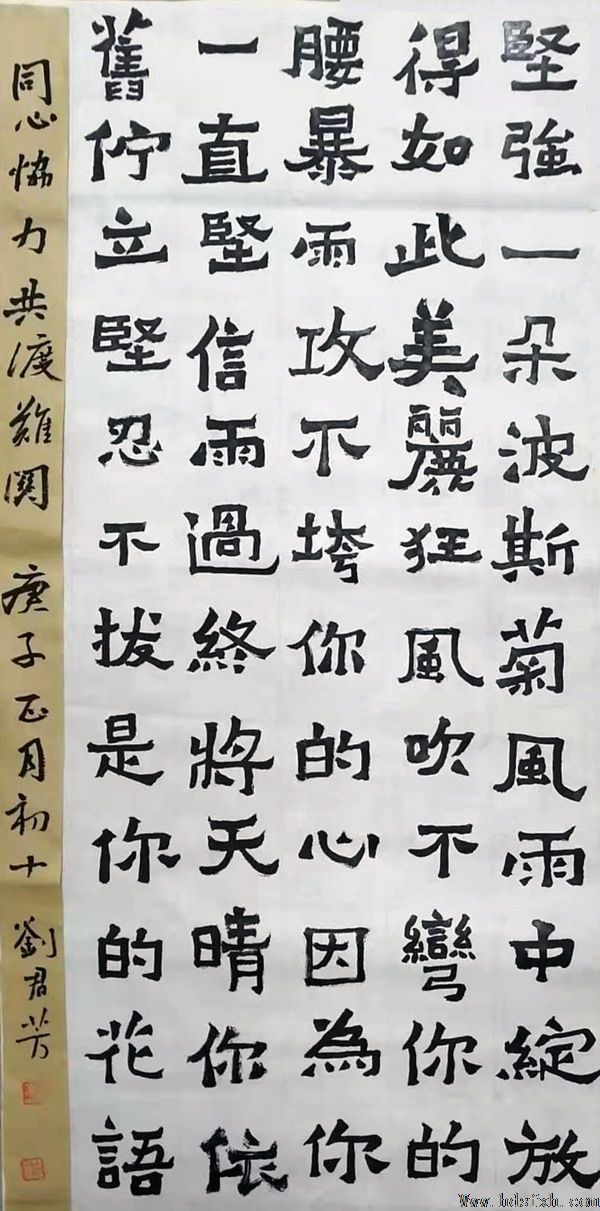 堅強一朵波斯菊風雨中綻放
得如此美麗狂風吹不彎你的
腰暴雨攻不垮你的心因為你
一直堅信雨過終將天晴你依
舊佇立堅忍不拔是你的花語
同心協力共渡難関 庚子正月初十 劉君芳